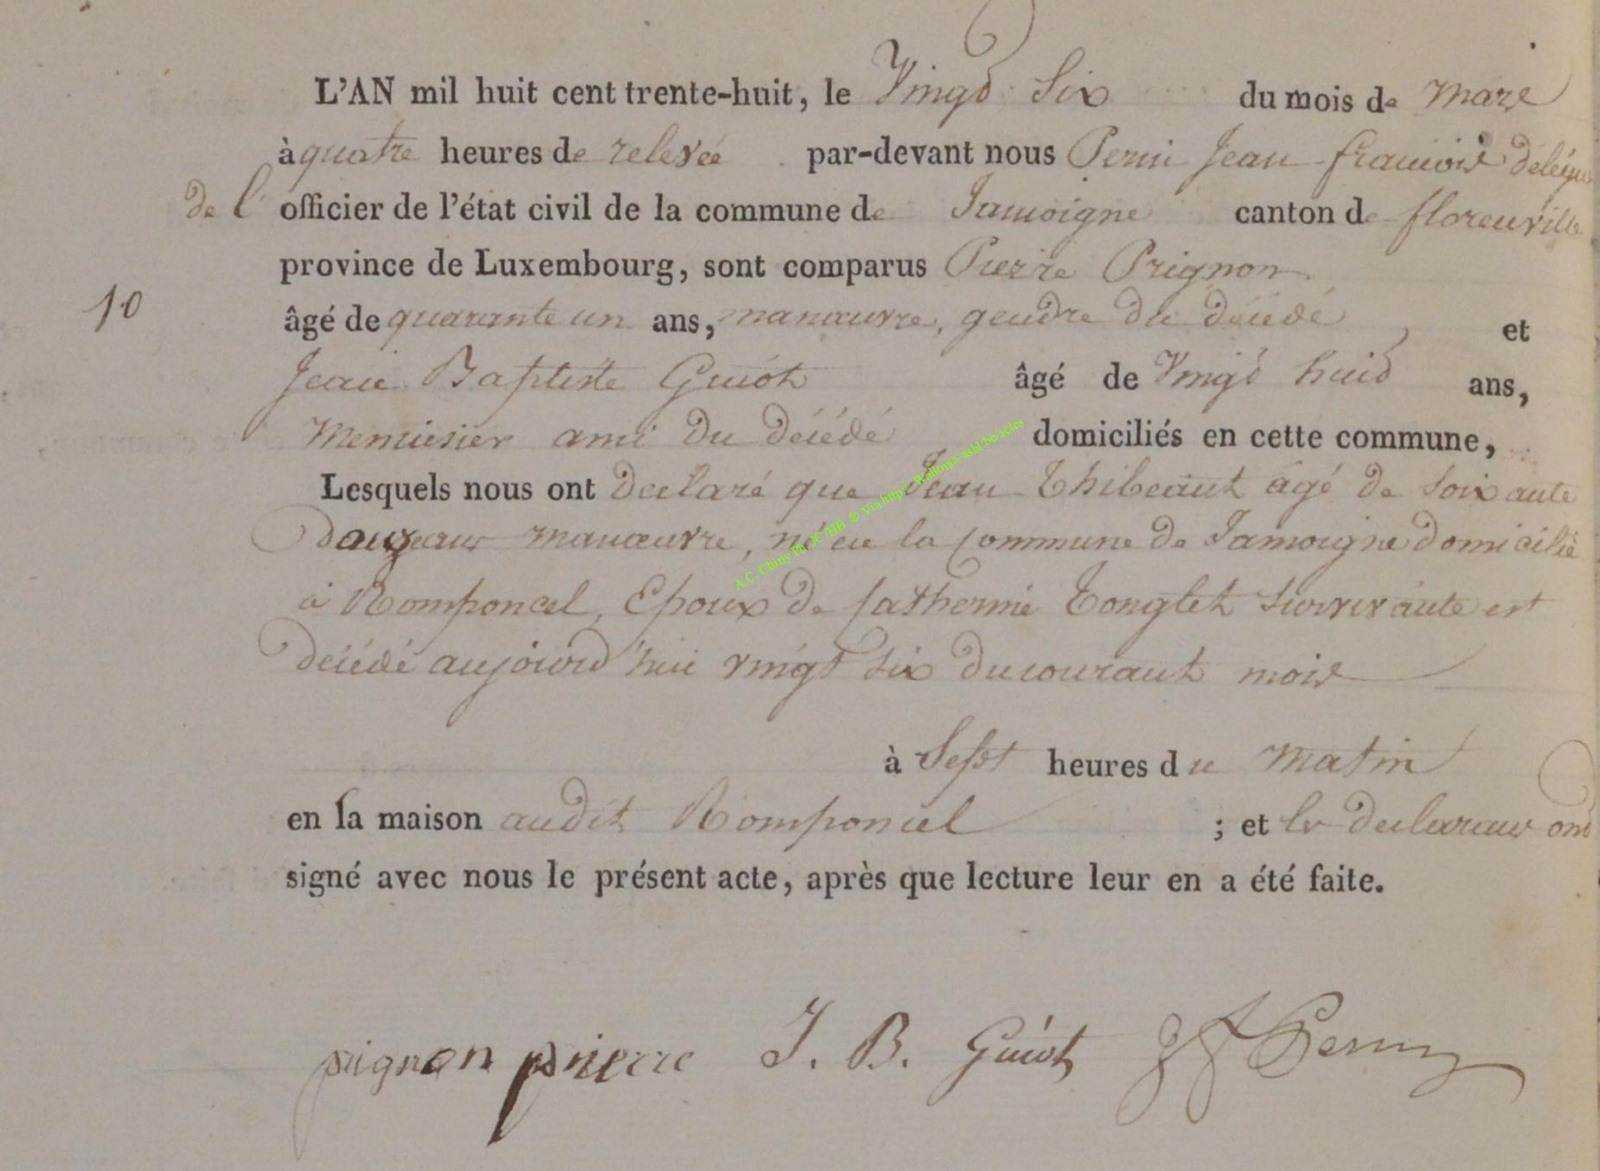 L'AN mil huit cent trente-huit, le Vingt Six du mois de Mars
à quatre heures de relevée par-devant nous Jean françois délégué
de l' officier de l'état civil de la commune de Jamoigne canton de florenville
province de Luxembourg, sont comparus Pierre Prignon
10
âgé de quarante un ans, manœuvre, gendre du décédé, et
Jean Baptiste Guiot âgé de Vingt huit ans,
Menuisier ami du décédé domiciliés en cette commune,
Lesquels nous ont declaré que Jean Thibeaut âgé de soixante
douze ans manœuvre, né en la Commune de Jamoigne domicilié
à Romponcel, Epoux de Catherine Tonglet Survivante est
décédé aujourd'hui vingt six du courant mois
à Sept heures du Matin
en la maison audit Romponcel ; et les declarans ont
signé avec nous le présent acte, après que lecture leur en a été faite.
prignon pierre J. B. Guiot